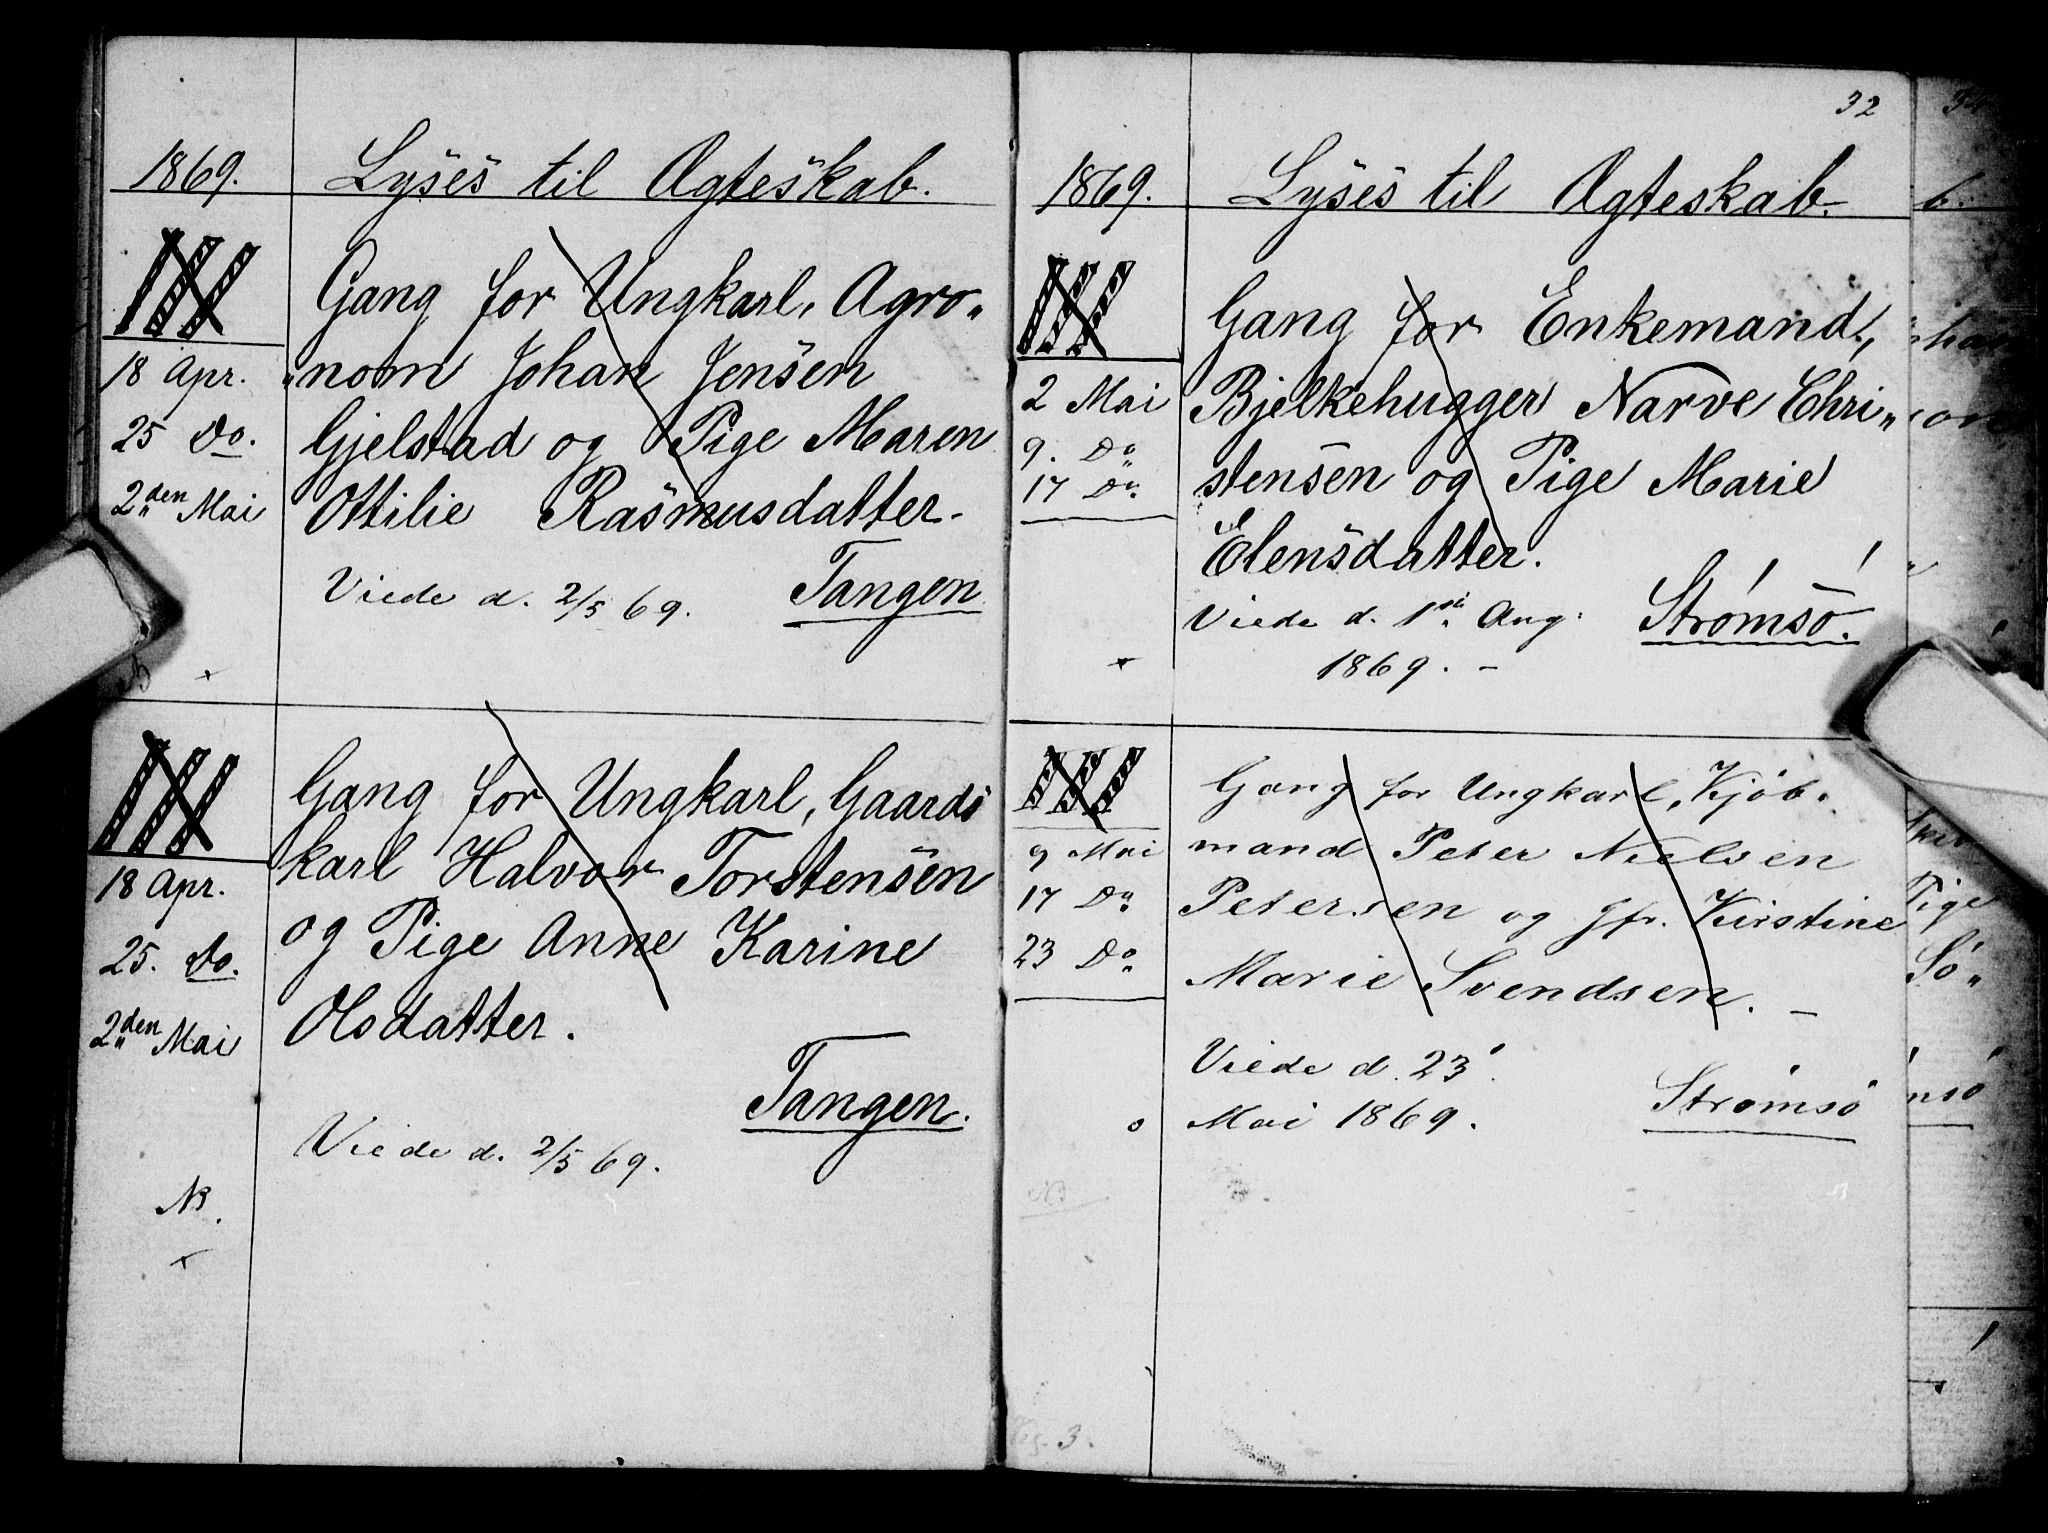 1869. Lyses til Ægteskab.
III Gang for Ungkarl, Agro„
18 Apr. „nom Johan Jensen
25 Do. Gjelstad og Pige Maren
2„den Mai Ottilie Rasmusdatter.
Viede d. 2/5 69. Tangen
III Gang for Ungkarl, Gaards
karl Halvor Torstensen
18 Apr. og Pige Anne Karine
25. Do.
2„den Mai Olsdatter.
Tangen.
Viede d. 2/5 69.
NB.
32
1869. Lyses til Ægteskab.
III Gang for Enkemand,
2 Mai Bjelkehugger Narve Chri„
9. Do
17 Do stensen og Pige Marie
Elensdatter.
Viede d. 1ste Aug. Strømsö.
1869. –
III Gang for Ungkarl, Kjöb„
9 Mai mand Peter Nielsen
17 Do Petersen og Jfr. Kirstine
23 Do Marie Svendsen. –
Viede d. 23'
Mai 1869. Strømsö
NB
3.